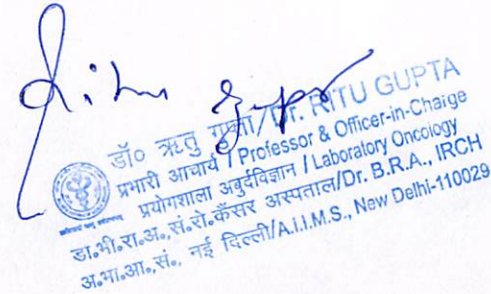 Ritu Gupta
डॉ० ऋतु गुप्ता/Dr. RITU GUPTA
प्रभारी आचार्य / Professor & Officer-in-Charge
प्रयोगशाला अर्बुदविज्ञान / Laboratory Oncology
डा.भी.रा.अ.,सं.रो.कैंसर अस्पताल/Dr. B.R.A., IRCH
अ.भा.आ.,सं., नई दिल्ली/A.I.I.M.S., New Delhi-110029